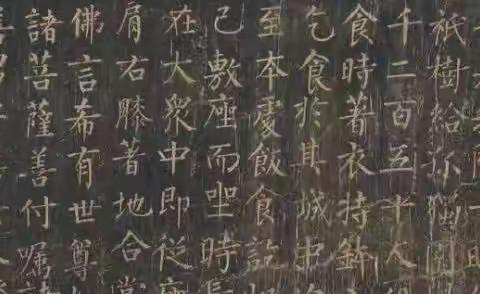 祇樹給孤獨園
千二百五十人
食時著衣持鉢
乞食於其城中
至本處飯食訖
已敷座而坐時長
在大衆中即從座
肩右膝著地合掌
佛言希有世尊
諸菩薩善付囑諸